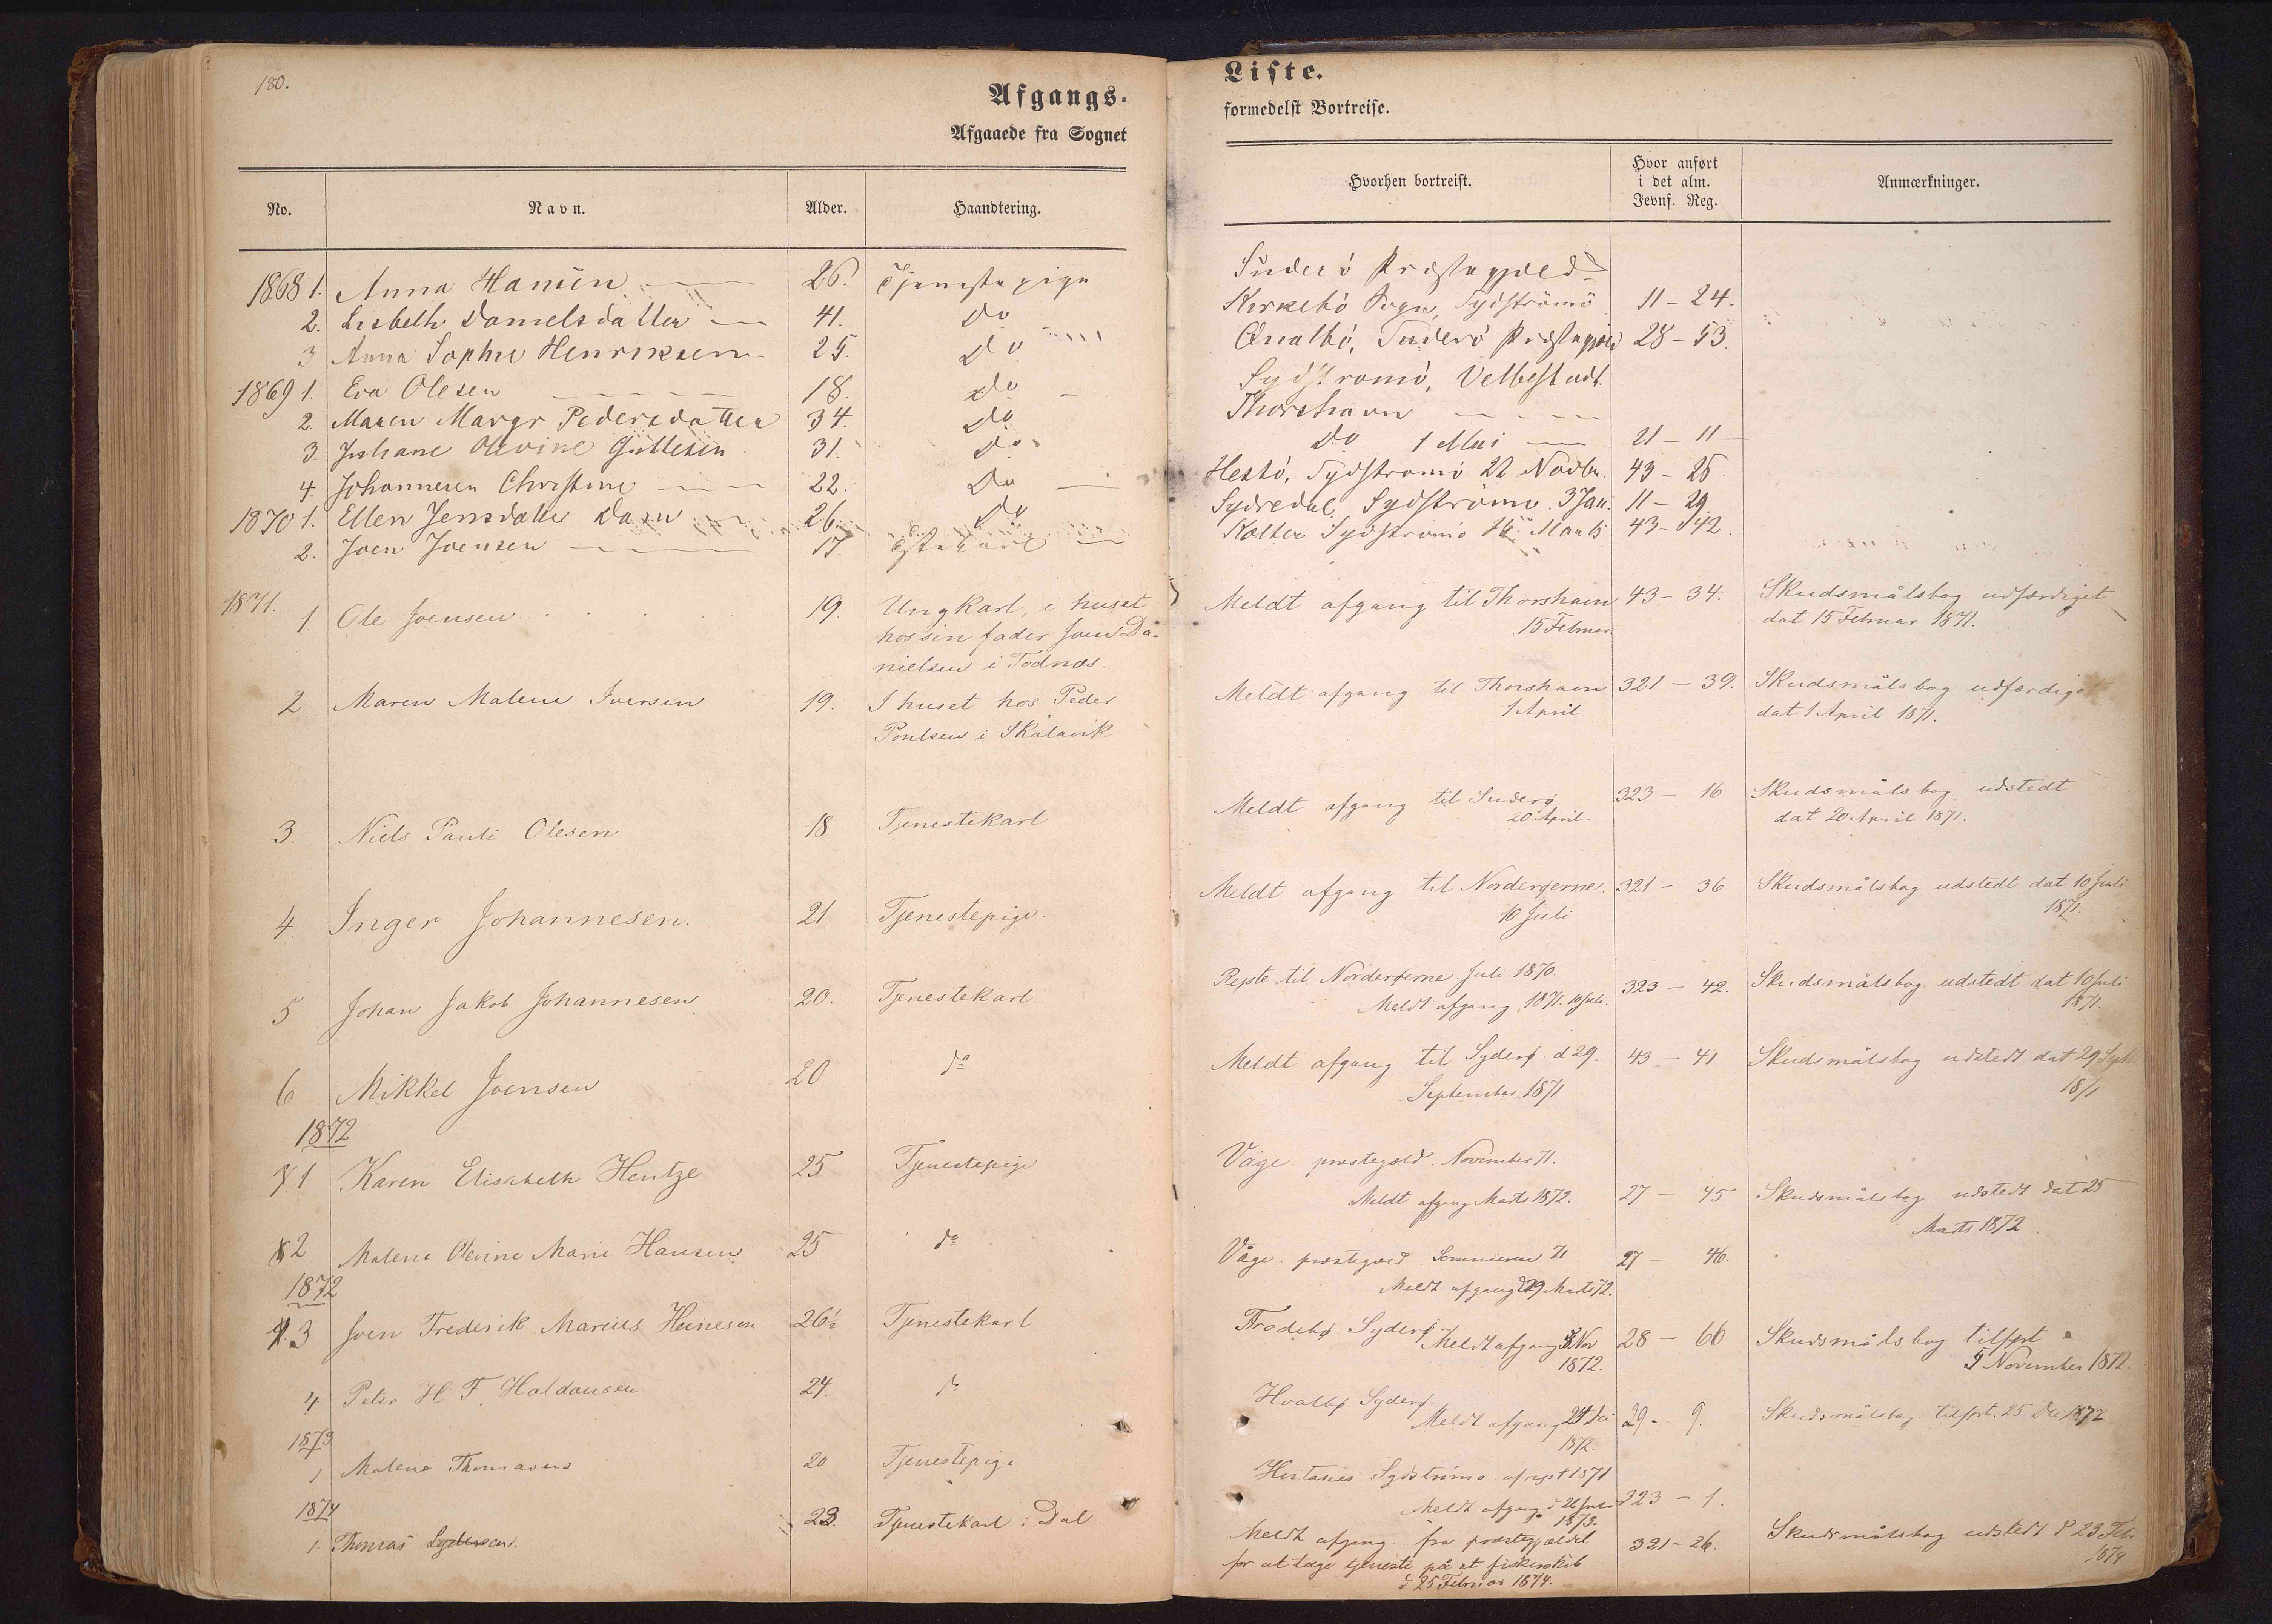 180.
Afgangs-
Afgaaede fra Sognet
No.
Navn.
Alder.
Haandtering.
1868 1. Anna Hansen 26. Tjenestepige
2. Lisbeth Danielsdatter 41. Do
3 Anna Sophie Henriksen 25. Do
1869 1. Eva Olesen 18. Do
2. Maren Margr Pedersdatter 34. Do
3. Olevine Guttesen 31. Do
4. Johannesen Christine 22. Do
1870 1. Ellen Jensdatter 26. Do
2. Joen Joensen 17.
1871. 1 Ole Joensen 19. Ungkarl, i huset
hos sin fader Joen Da-
nielsen i Todnæs.
2 Maren Malene Iversen 19. I huset hos Peder
Poulsen i Skålavik
3. Niels Pauli Olesen 18 Tjenestekarl
4. Inger Johannesen. 21 Tjenestepige.
5 Johan Jakob Johannesen 20. Tjenestekarl.
6 Mikkel Joensen 20 do
1872
1 Karen Elisabeth Hentze 25 Tjenestepige
2 Malene Olevine Marie Hansen 25 do
1872
3 Joen Frederik Marius Heinesen 26½ Tjenestekarl
4. Peter H F. Haldansen 24. do
1873
1 Malene Thomasen 20 Tjenestepige
1874
1. Thomas 23. Tjenestekarl i Dal
Liste.
formedelst Bortreise.
Hvorhen bortreist.
Hvor anført
i det alm.
Jevnf. Reg.
Anmærkninger.
Suderö Præstegjeld
Kirkebö Sogn, Sydströmö 11 - 24.
Qualbö, Suderö Præstegjeld 28 - 53.
Sydströmö, Velbestadt.
Thorshavn
Do 1 Mai 21 - 11
Hestö, Sydströmö 22 Novbr. 43 - 25
Sydredal Sydströmö. 3 Jan. 11 - 29
Kolter Sydströmö Marts 43 - 42
Meldt afgang til Thorshavn 43 - 34. Skudsmålsbog udfærdiget
15 Februar. dat 15 Februar 1871.
Meldt afgang til Thorshavn 321 - 39. Skudsmålsbog udfærdiget
1 April. dat 1 April 1871.
Meldt afgang til Suderø 323 - 16 Skudsmålsbog udstedt
20 April. dat 20 April 1871.
Meldt afgang til Norderøerne. 321 - 36 Skudsmålsbog udstedt dat 10 Juli
10 Juli 1871.
Rejste til Norderøerne Juli 1870
Meldt afgang 1871. 10 Juli. 323 - 42. Skudsmålsbog udstedt dat 10 Juli
1871.
Meldt afgang til Syderø. d 29. 43 - 41 Skudsmålsbog udstedt dat 29 Sept
September 1871 1871
Våge præstegæld. November 71.
Meldt afgang Marts 1872. 27 - 45 Skudsmålsbog udstedt dat 25
Marts 1872
Våge præstegæld Sommeren 71 27 - 46.
Meldt afgang d 29 Marts 72.
Frodebø. Syderø. Meldt afgang 5 Nov 28 - 66 Skudsmålsbog tilført
1872. 5 November 1872.
Hvalbø Syderø
Meldt afgang 29 - 9. Skudsmålsbog tilført. 25 Dec 1872
1872.
Sydströmø afrejst 1871
Meldt afgang d 26 Juli 323 - 1.
1873.
Meldt afgang fra præstegjældet 321 - 26. Skudsmålsbog udstedt d 23 Febr
for at tage tjeneste på et fiskerskib 1874
d 25 Februar 1874.